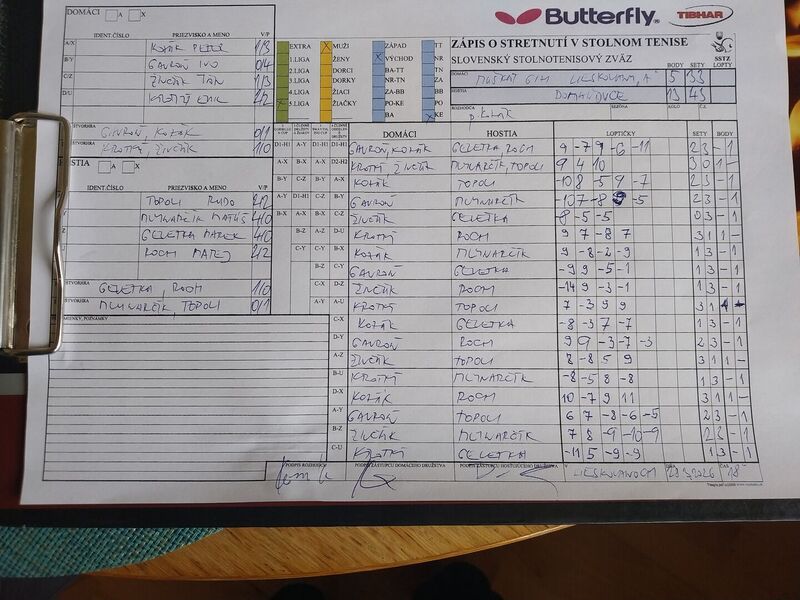 Butterfly
TIBHAR
DOMÁCI A X
IDENT.ČÍSLO PRIEZVISKO A MENO V/P
A/X KOZÁK PETER 1/3
B/Y GAVROŇ IVO 0/4
C/Z ŽIVČÁK JÁN 1/3
D/U KROTKÝ 2/2
ŠTVORHRA GAVROŇ, KOZÁK 0/1
ŠTVORHRA KROTKÝ, ŽIVČÁK 1/0
HOSTIA A X
IDENT.ČÍSLO PRIEZVISKO A MENO V/P
TOPOLI RUDO 2/2
MLYNARČÍK MATÚŠ 4/0
GELETKA MAREK 4/0
ROCH MATEJ 2/2
GELETKA, ROCH 1/0
ŠTVORHRA MLYNARČÍK, TOPOLI 0/1
EXTRA
1.LIGA
2.LIGA
3.LIGA
4.LIGA
5.LIGA
X MUŽI
ŽENY
DORCI
DORKY
ŽIACI
ŽIAČKY
ZÁPAD
X VÝCHOD
BA-TT
NR-TN
ZA-BB
PO-KE
BA
TT
NR
TN
ZA
BB
PO
X KE
ZÁPIS O STRETNUTÍ V STOLNOM TENISE
SLOVENSKÝ STOLNOTENISOVÝ ZVÄZ
SSTZ
DOMÁCI BODY SETY LOPTY
5 33
HOSTIA
DOMAŇOVCE 13 43
ROZHODCA SEZÓNA KOLO Č.
p. KOZÁK
DOMÁCI HOSTIA LOPTIČKY SETY BODY
D1-H1 A-Y D1-H1 D1-H1 GAVROŇ, KOZÁK GELETKA, ROCH 9 -7 9 -6 -11 2 3 - 1
A-X B-X D2-H2 KROTKÝ, ŽIVČÁK MLYNARČÍK, TOPOLI 9 4 10 3 0 1 -
A-X KOZÁK TOPOLI -10 8 -5 9 -7 2 3 - 1
B-Y GAVROŇ MLYNARČÍK -10 7 -8 9 -5 2 3 - 1
C-Z ŽIVČÁK GELETKA -8 -5 -5 0 3 - 1
D-U KROTKÝ ROCH 9 7 -8 7 3 1 1 -
B-X KOZÁK MLYNARČÍK 9 -8 -2 -9 1 3 - 1
C-Y GAVROŇ GELETKA -9 9 -5 -1 1 3 - 1
D-Z ŽIVČÁK ROCH -14 9 -3 -1 1 3 - 1
A-U KROTKÝ TOPOLI 7 -3 9 9 3 1 1 -
C-X KOZÁK GELETKA -8 -3 7 -7 1 3 - 1
D-Y GAVROŇ ROCH 9 9 -3 -7 -3 2 3 - 1
A-Z ŽIVČÁK TOPOLI 8 -8 5 9 3 1 1 -
B-U KROTKÝ MLYNARČÍK -8 -5 8 -8 1 3 - 1
D-X KOZÁK ROCH 10 -7 9 11 3 1 1 -
A-Y GAVROŇ TOPOLI 6 7 -8 -6 -5 2 3 - 1
B-Z ŽIVČÁK MLYNARČÍK 7 8 -9 -10 -9 2 3 - 1
C-U KROTKÝ GELETKA -11 5 -9 -9 1 3 - 1
PODPIS ROZHODCU PODPIS ZÁSTUPCU DOMÁCEHO DRUŽSTVA PODPIS ZÁSTUPCU HOSŤUJÚCEHO DRUŽSTVA V DŇA ČAS